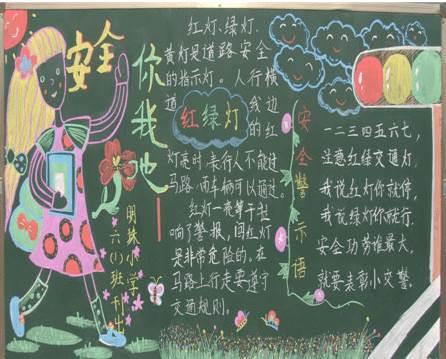 安全
你我他
明珠小学
六(1)班刊出
红灯、绿灯、
黄灯是道路安全
的指示灯。人行横
道
边
的红
红绿灯
灯亮时,表行人不能过
马路,而车辆可以通过。
红灯一亮等于
响了警报,闯红灯
是非常危险的,在
马路上行走要遵守
交通规则。
安全警示语
一二三四五六七,
注意红绿交通灯,
我说红灯你就停,
我说绿灯你就行,
安全功劳谁最大,
就要表彰小交警。